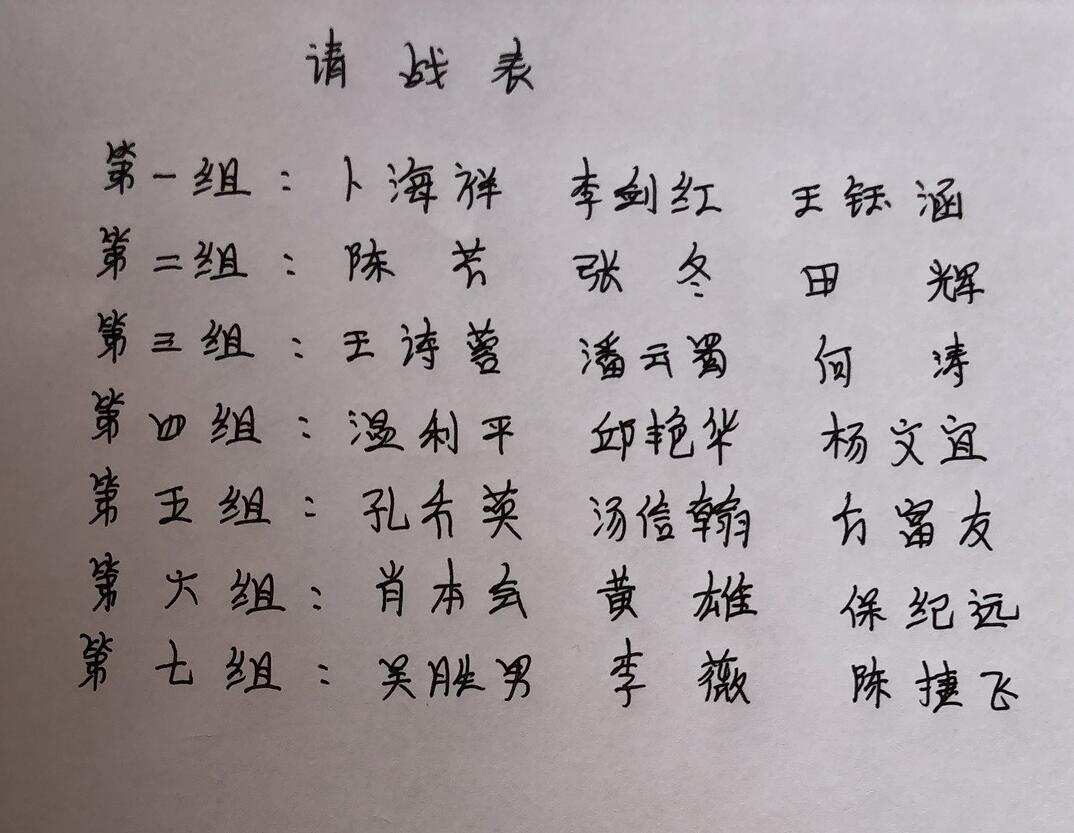 请战表
第一组：卜海祥 李剑红 王钰涵
第二组：陈芳 张冬 田辉
第三组：王诗蓉 潘云蜀 何涛
第四组：温利平 邱艳华 杨文宜
第五组：孔乔英 汤信翰 方富友
第六组：肖本会 黄雄 保纪远
第七组：吴胜男 李薇 陈捷飞